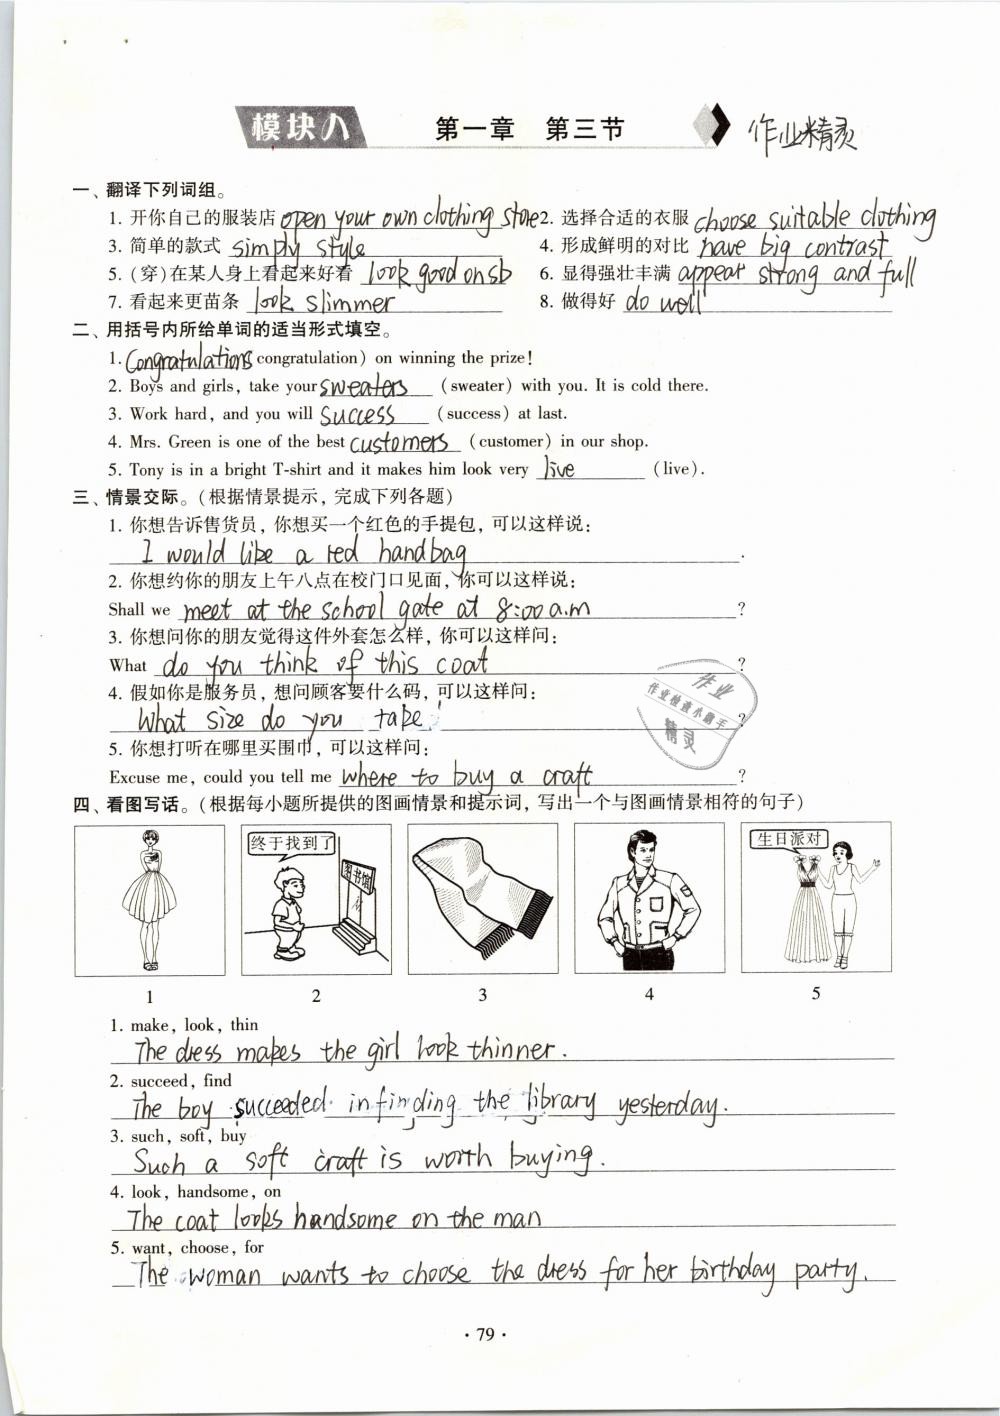 模块八 第一章 第三节 作业精灵
一、翻译下列词组。
1. 开你自己的服装店 open your own clothing store 2. 选择合适的衣服 choose suitable clothing
3. 简单的款式 simply style 4. 形成鲜明的对比 have big contrast
5. (穿)在某人身上看起来好看 look good on sb 6. 显得强壮丰满 appear strong and full
7. 看起来更苗条 look slimmer 8. 做得好 do well
二、用括号内所给单词的适当形式填空。
1. Congratulations congratulation) on winning the prize!
2. Boys and girls, take your sweaters (sweater) with you. It is cold there.
3. Work hard, and you will success (success) at last.
4. Mrs. Green is one of the best customers (customer) in our shop.
5. Tony is in a bright T-shirt and it makes him look very live (live).
三、情景交际。(根据情景提示，完成下列各题)
1. 你想告诉售货员，你想买一个红色的手提包，可以这样说：
I would like a red handbag.
2. 你想约你的朋友上午八点在校门口见面，你可以这样说：
Shall we meet at the school gate at 8:00 a.m?
3. 你想问你的朋友觉得这件外套怎么样，你可以这样问：
What do you think of this coat?
4. 假如你是服务员，想问顾客要什么码，可以这样问：
What size do you take?
5. 你想打听在哪里买围巾，可以这样问：
Excuse me, could you tell me where to buy a craft?
作业
作业检查小帮手
精灵
四、看图写话。(根据每小题所提供的图画情景和提示词，写出一个与图画情景相符的句子)
终于找到了
图书馆
生日派对
1 2 3 4 5
1. make, look, thin
The dress makes the girl look thinner.
2. succeed, find
The boy succeeded in finding the library yesterday.
3. such, soft, buy
Such a soft craft is worth buying.
4. look, handsome, on
The coat looks handsome on the man
5. want, choose, for
The woman wants to choose the dress for her birthday party.
· 79 ·